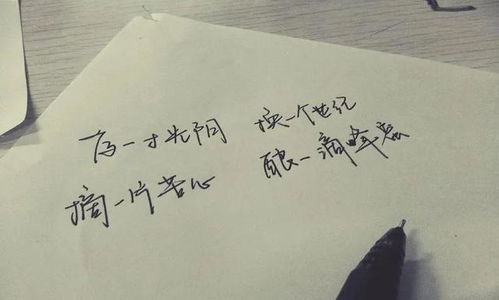 为一寸光阴 换一个世纪
摘一片苦心 酿一滴蜂蜜